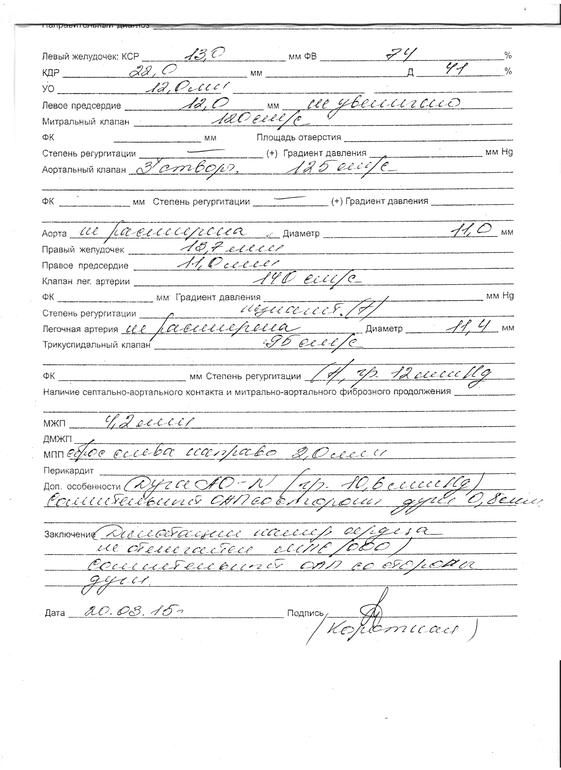 Левый желудочек: КСР 13,0 мм ФВ 74 %
КДР 22,0 мм Д 41 %
УО 12,0 мл
Левое предсердие 12,0 мм не увеличено
Митральный клапан 120 cm/c
ФК мм Площадь отверстия
Степень регургитации — (+) Градиент давления мм Hg
Аортальный клапан 3 створ. 125 cm/c
ФК мм Степень регургитации — (+) Градиент давления
Аорта не расширена Диаметр 11,0 мм
Правый желудочек 13,7 мм
Правое предсердие 11,0 мм
Клапан лег. артерии 140 cm/c
ФК мм Градиент давления мм Hg
Степень регургитации (+)
Легочная артерия не расширена Диаметр 11,4 мм
Трикуспидальный клапан 95 cm/c
ФК мм Степень регургитации (+), гр. 12 мм Hg
Наличие септально-аортального контакта и митрально-аортального фиброзного продолжения
МЖП 4,2 мм
ДМЖП
МПП сброс слева направо 2,0 мм
Перикардит
Доп. особенности Дуга АО - N (гр. 10,6 мм Hg)
Сомнительный ОАП со стороны дуги 0,8 мм
Заключение Дилатации камер сердца
не отмечается МПС (ООО)
Сомнительный ОАП со стороны
дуги.
Дата 20.03.15г Подпись